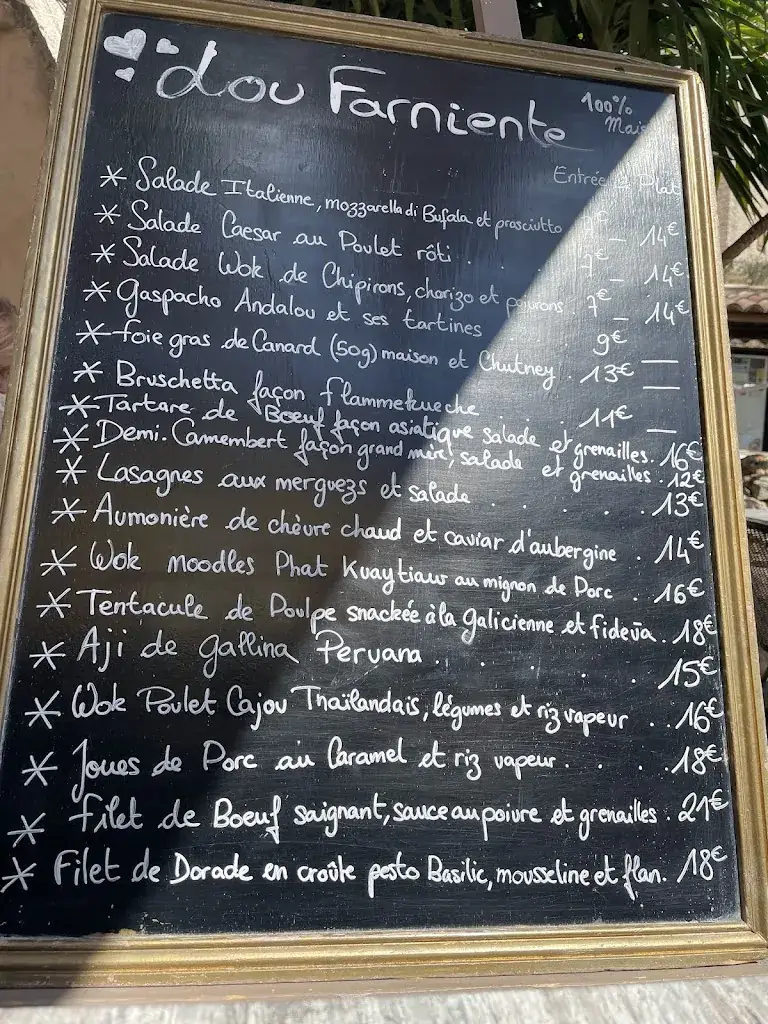 Lou Farniente
100%
Mais
Entrée Plat
* Salade Italienne, mozzarella di Bufala et prosciutto 7€ _ 14€
* Salade Caesar au Poulet rôti . . . 7€ _ 14€
* Salade Wok de Chipirons, chorizo et poivrons 7€ _ 14€
* Gaspacho Andalou et ses tartines 9€ __
* foie gras de Canard (50g) maison et Chutney . 13€ __
* Bruschetta façon flammekueche 11€ __
* Tartare de Boeuf façon asiatique salade et grenailles. 16€
* Demi-Camembert façon grand mère, salade et grenailles . 12€
* Lasagnes aux merguezs et salade . . . . . 13€
* Aumonière de chèvre chaud et caviar d'aubergine . 14€
* Wok noodles Phat Kuaytiaw au mignon de Porc . 16€
* Tentacule de Poulpe snackée à la galicienne et fideùa . 18€
* Aji de gallina Peruana . . . . . 15€
* Wok Poulet Cajou Thaïlandais, légumes et riz vapeur . . 16€
* Joues de Porc au Caramel et riz vapeur . . . . 18€
* filet de Boeuf saignant, sauce au poivre et grenailles . 21€
* Filet de Dorade en croûte pesto Basilic, mousseline et flan. 18€